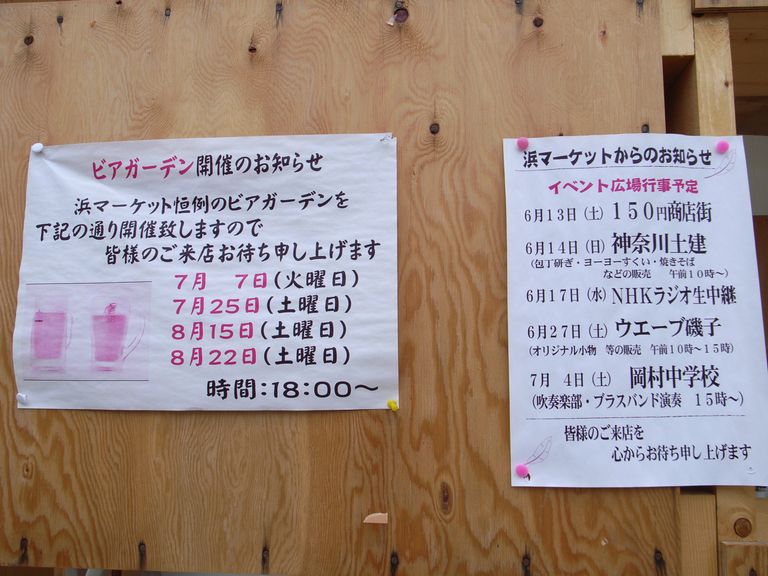 ビアガーデン開催のお知らせ
浜マーケット恒例のビアガーデンを
下記の通り開催致しますので
皆様のご来店お待ち申し上げます
7月 7日(火曜日)
7月25日(土曜日)
8月15日(土曜日)
8月22日(土曜日)
時間:18:00〜
浜マーケットからのお知らせ
イベント広場行事予定
6月13日(土)150円商店街
6月14日(日)神奈川土建
(包丁研ぎ・ヨーヨーすくい・焼きそば
などの販売 午前10時〜)
6月17日(水)NHKラジオ生中継
6月27日(土)ウエーブ磯子
(オリジナル小物 等の販売 午前10時〜15時)
7月 4日(土) 岡村中学校
(吹奏楽部・ブラスバンド演奏 15時〜)
皆様のご来店を
心からお待ち申し上げます